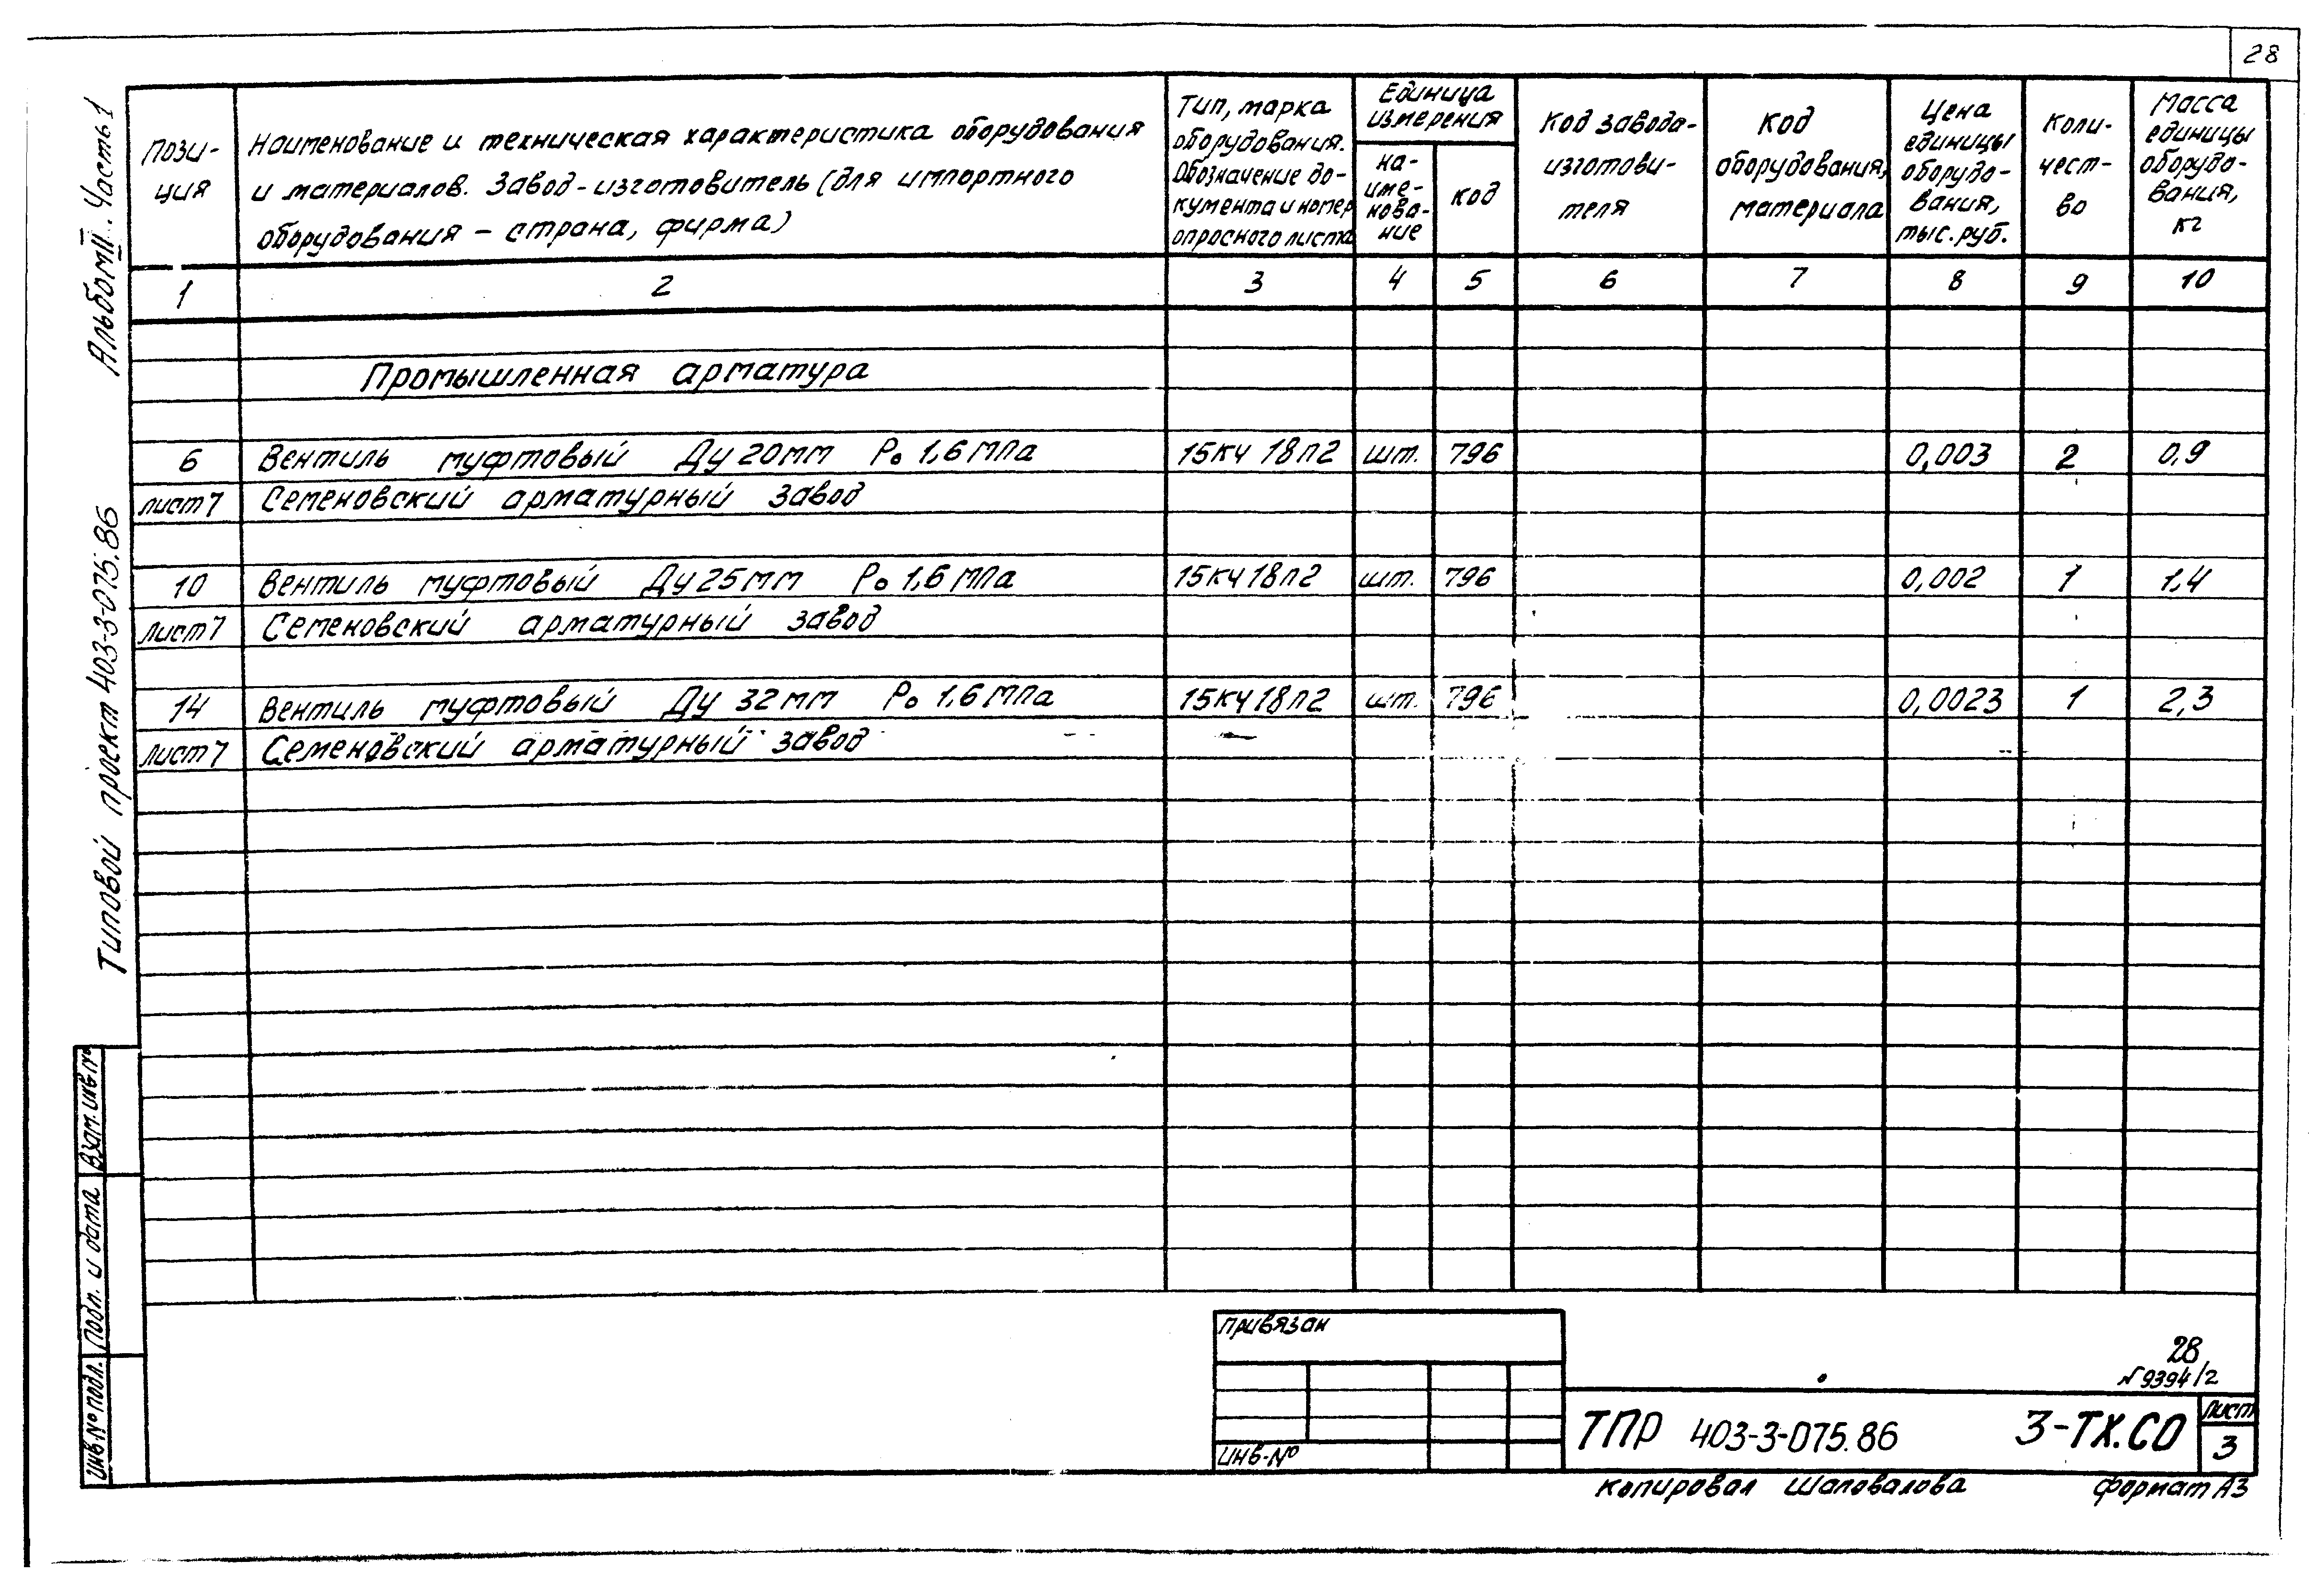 28
Альбом II. Часть 1
Типовой проект 403-3-075.86
Пози-
ция
Наименование и техническая характеристика оборудования
и материалов. Завод-изготовитель (для импортного
оборудования – страна, фирма)
Тип, марка
оборудования.
Обозначение до-
кумента и номер
опросного листа
Единица
измерения
на-
име-
нова-
ние
код
Код завода-
изготови-
теля
Код
оборудования,
материала
Цена
единицы
оборудо-
вания,
тыс. руб.
Коли-
чест-
во
Масса
единицы
оборудо-
вания,
кг
1 2 3 4 5 6 7 8 9 10
Промышленная арматура
6 Вентиль муфтовый Ду 20 мм Ро 1,6 МПа 15кч 18п2 шт. 796 0,003 2 0,9
лист 7 Семеновский арматурный завод
10 Вентиль муфтовый Ду 25 мм Ро 1,6 МПа 15кч 18п2 шт. 796 0,002 1 1,4
лист 7 Семеновский арматурный завод
14 Вентиль муфтовый Ду 32 мм Ро 1,6 МПа 15кч 18п2 шт. 796 0,0023 1 2,3
лист 7 Семеновский арматурный завод
Взам. инв №
Подп. и дата
Инв № подл.
Привязан
Инв. №
28
N 9394/2
ТПР 403-3-075.86 3-ТХ.СО
Лист
3
Копировал Шаповалова Формат А3